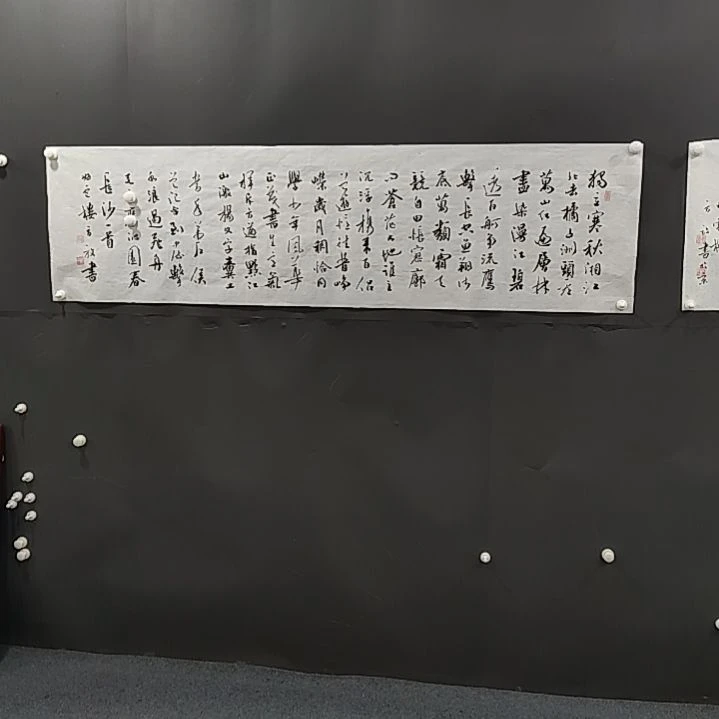 獨立寒秋湘江
北去橘子洲頭看
萬山红遍層林
盡染漫江碧
透百舸争流鹰
擊長空魚翔浅
底萬類霜天
競自由悵寥廓
问蒼茫大地誰主
沉浮携来百侣
曾遊憶往昔崢
嶸歲月稠恰同
學少年風華
正茂書生意氣
揮斥方遒指點江
山激揚文字糞土
當年萬户侯
曾记否到中流擊
水浪遏飛舟
沁園春
長沙一首
書
書